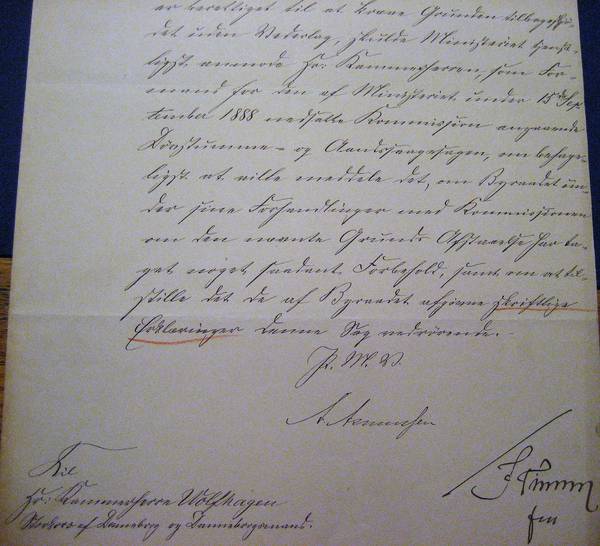 er berettiget til at kræve Grunden tilbageskjø-
det uden Vederlag, skulde Ministeriet tjenst-
ligst anmode Hr. Kammerherren, som For-
mand for den af Ministeriet under 15de Sep-
tember 1888 nedsatte Kommission angaaende
Døvstumme- og Aandssvagesagen, om behage-
ligst at ville meddele det, om Byraadet un-
der sine Forhandlinger med Kommissionen
om den nævnte Grunds Afstaaelse har ta-
get noget saadant Forbehold, samt om at til-
stille det de af Byraadet afgivne skriftlige
Erklæringer denne Sag vedrørende.-
P. M. V.
A Asmussen
Til
Hr. Kammerherre Wolfhagen
Storkors af Danebrog og Dannebrogsmand.
fm